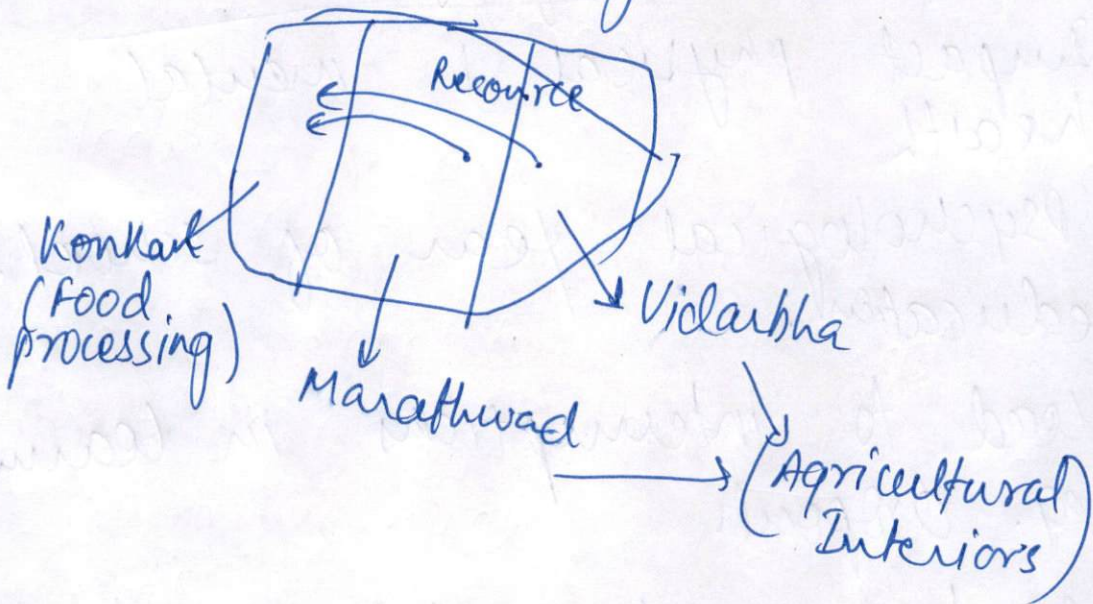 Resource
Konkan
(Food
processing)
Marathwad
Vidarbha
(Agricultural
Interiors)